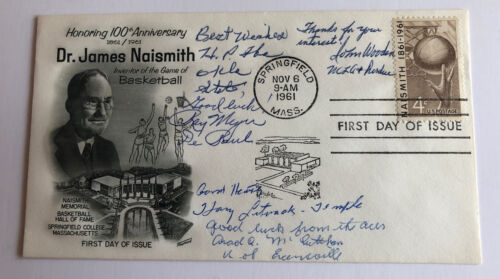 Honoring 100th Anniversary
1861 / 1961
Dr. James Naismith
Inventor of the Game of
Basketball
NAISMITH
MEMORIAL
BASKETBALL
HALL OF FAME
SPRINGFIELD COLLEGE
MASSACHUSETTS
FIRST DAY OF ISSUE
Best Wishes
H. P. Iba
Okla
State
Good luck
Ray Meyer
De Paul
Thanks for your
interest!
John Wooden
UCLA + Purdue
SPRINGFIELD
NOV 6
9-AM
1961
MASS.
NAISMITH 1861-1961
4¢ U.S. POSTAGE
FIRST DAY OF ISSUE
Harry Litwack - Temple
Good luck from the aces
Arad A. McCutchan
U of Evansville